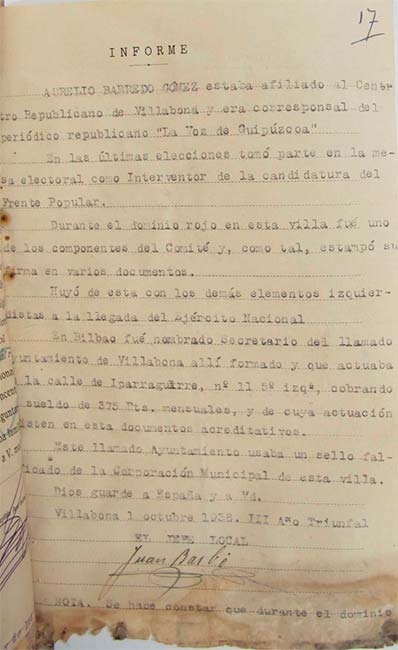 17
INFORME
AURELIO BARREDO GÓMEZ estaba afiliado al Centr
tro Republicano de Villabona y era corresponsal del
periódico republicano "La Voz de Guipúzcoa"
En las últimas elecciones tomó parte en la me-
sa electoral como Interventor de la candidatura del
Frente Popular.
Durante el dominio rojo en esta villa fué uno
de los componentes del Comité y, como tal, estampó su
firma en varios documentos.
Huyó de esta con los demás elementos izquier-
distas a la llegada del Ejército Nacional
En Bilbao fué nombrado Secretario del llamado
yuntamiento de Villabona allí formado y que actuaba
la calle de Iparraguirre, nº 11 5º izqª, cobrando
sueldo de 375 Pts. mensuales, y de cuya actuación
isten en esta documentos acreditativos.
Este llamado Ayuntamiento usaba un sello fal-
icado de la Corporación Municipal de esta villa.
Dios guarde a España y a Vd.
Villabona 1 octubre 1938. III Año Triunfal
EL JEFE LOCAL
Juan Barbé
NOTA. Se hace constar que durante el dominio